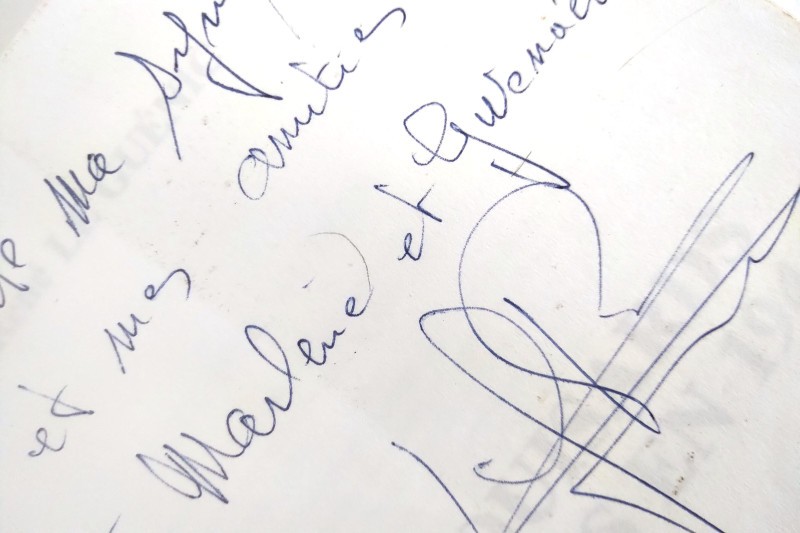 de ma sym
et mes amitiés
Marlène et Gwénaë